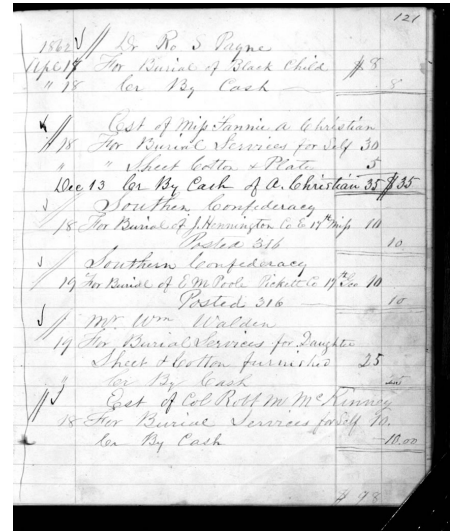 121
1862 Dr Ro S Payne
Apl 18 For Burial of Black Child $8
" 18 Cr By Cash 8
Est of Miss Fannie A Christian
18 For Burial Services for Self 30
" " Sheet Cotton & Plate 5
Dec 13 Cr By Cash of A. Christian 35 $35
Southern Confederacy
18 For Burial of J. Hennington Co E 17th Miss 10
Posted 316 10
Southern Confederacy
19 For Burial of E M Poole Pickett Co 17th Geo 10
Posted 316 10
Mr Wm Walden
19 For Burial Services for Daughter
Sheet & Cotton furnished 25
" Cr By Cash 25
Est of Col Robt M McKinney
18 For Burial Services for Self 10.
Cr By Cash 10.00
$ 98